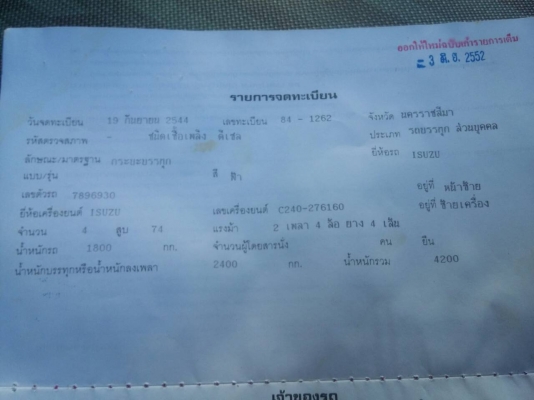 ออกให้ใหม่ฉบับเก่ารายการเต็ม
3 มิ.ย. 2552
รายการจดทะเบียน
วันจดทะเบียน 19 กันยายน 2544 เลขทะเบียน 84 - 1262 จังหวัด นครราชสีมา
รหัสตรวจสภาพ - ชนิดเชื้อเพลิง ดีเซล ประเภท รถบรรทุก ส่วนบุคคล
ลักษณะ/มาตรฐาน กระบะบรรทุก ยี่ห้อรถ ISUZU
แบบ/รุ่น สี ฟ้า
เลขตัวรถ 7896930 อยู่ที่ หน้าซ้าย
ยี่ห้อเครื่องยนต์ ISUZU เลขเครื่องยนต์ C240-276160 อยู่ที่ ซ้ายเครื่อง
จำนวน 4 สูบ 74 แรงม้า 2 เพลา 4 ล้อ ยาง 4 เส้น
น้ำหนักรถ 1800 กก. จำนวนผู้โดยสารนั่ง คน ยืน
น้ำหนักบรรทุกหรือน้ำหนักลงเพลา 2400 กก. น้ำหนักรวม 4200
เจ้าของรถ